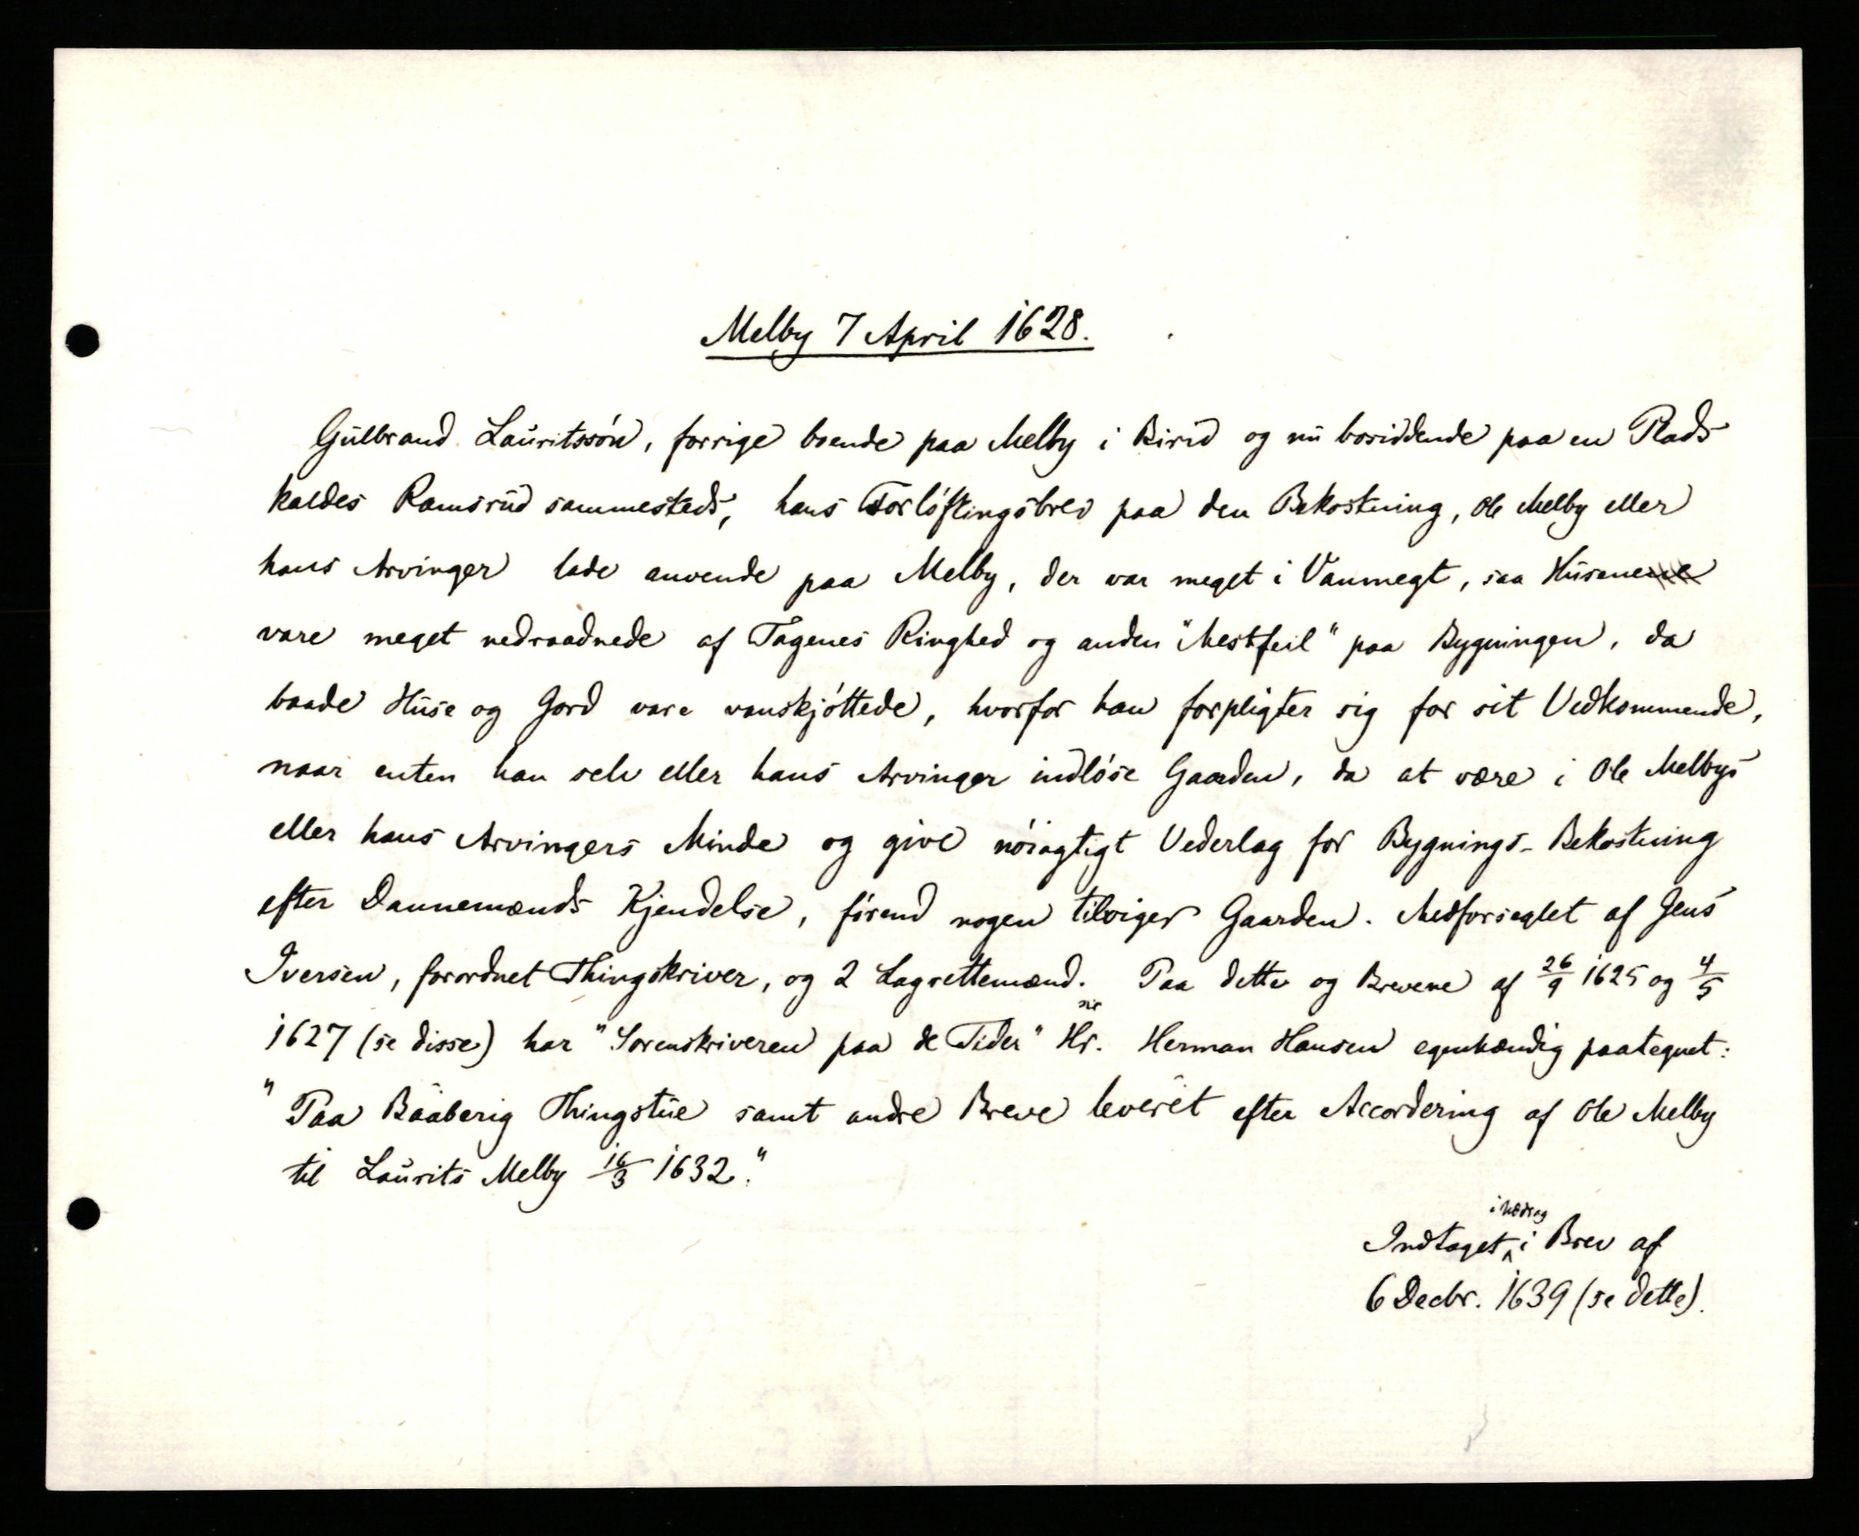 Melby 7 April 1628.
Gulbrand Lauritssøn, forrige boende paa Melby i Birid og nu bosiddende paa en Plads
kaldes Ramsrud sammesteds, hans Forløftingsbrev paa den Bekostning, Ole Melby eller
hans Arvinger lade anvende paa Melby, der var meget i Vanmegt, saa Husene
vare meget nedraadnede af Tagenes Ringhed og anden "Mestfeil" paa Bygningen, da
baade Huse og Jord vare vanskjøttede, hvorfor han forpligter sig for sit Vedkommende,
naar enten han selv eller hans Arvinger indløse Gaarden, da at være i Ole Melbys
eller hans Arvingers Minde og give nøiagtigt Vederlag for Bygnings-Bekostning
efter Dannemænds Kjendelse, førend nogen tilviger Gaarden. Medforseglet af Jens
Iversen, forordnet Thingskriver, og 2 Lagrettemænd. Paa dette og Brevene af 26/9 1625 og 4/5
1627 (se disse) har "Sorenskriveren paa de Tider" Hr. Herman Hansen egenhændig paategnet:
"Paa Baaberig Thingstue samt andre Breve leverét efter Accordering af Ole Melby
til Laurits Melby 16/3 1632."
Indtaget i Brev af
6 Decbr. 1639 (se dette).